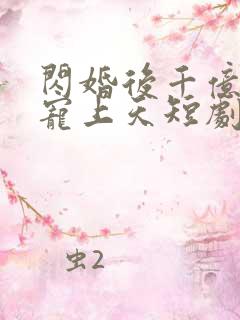 閃婚後千億
寵上天短劇
虫2